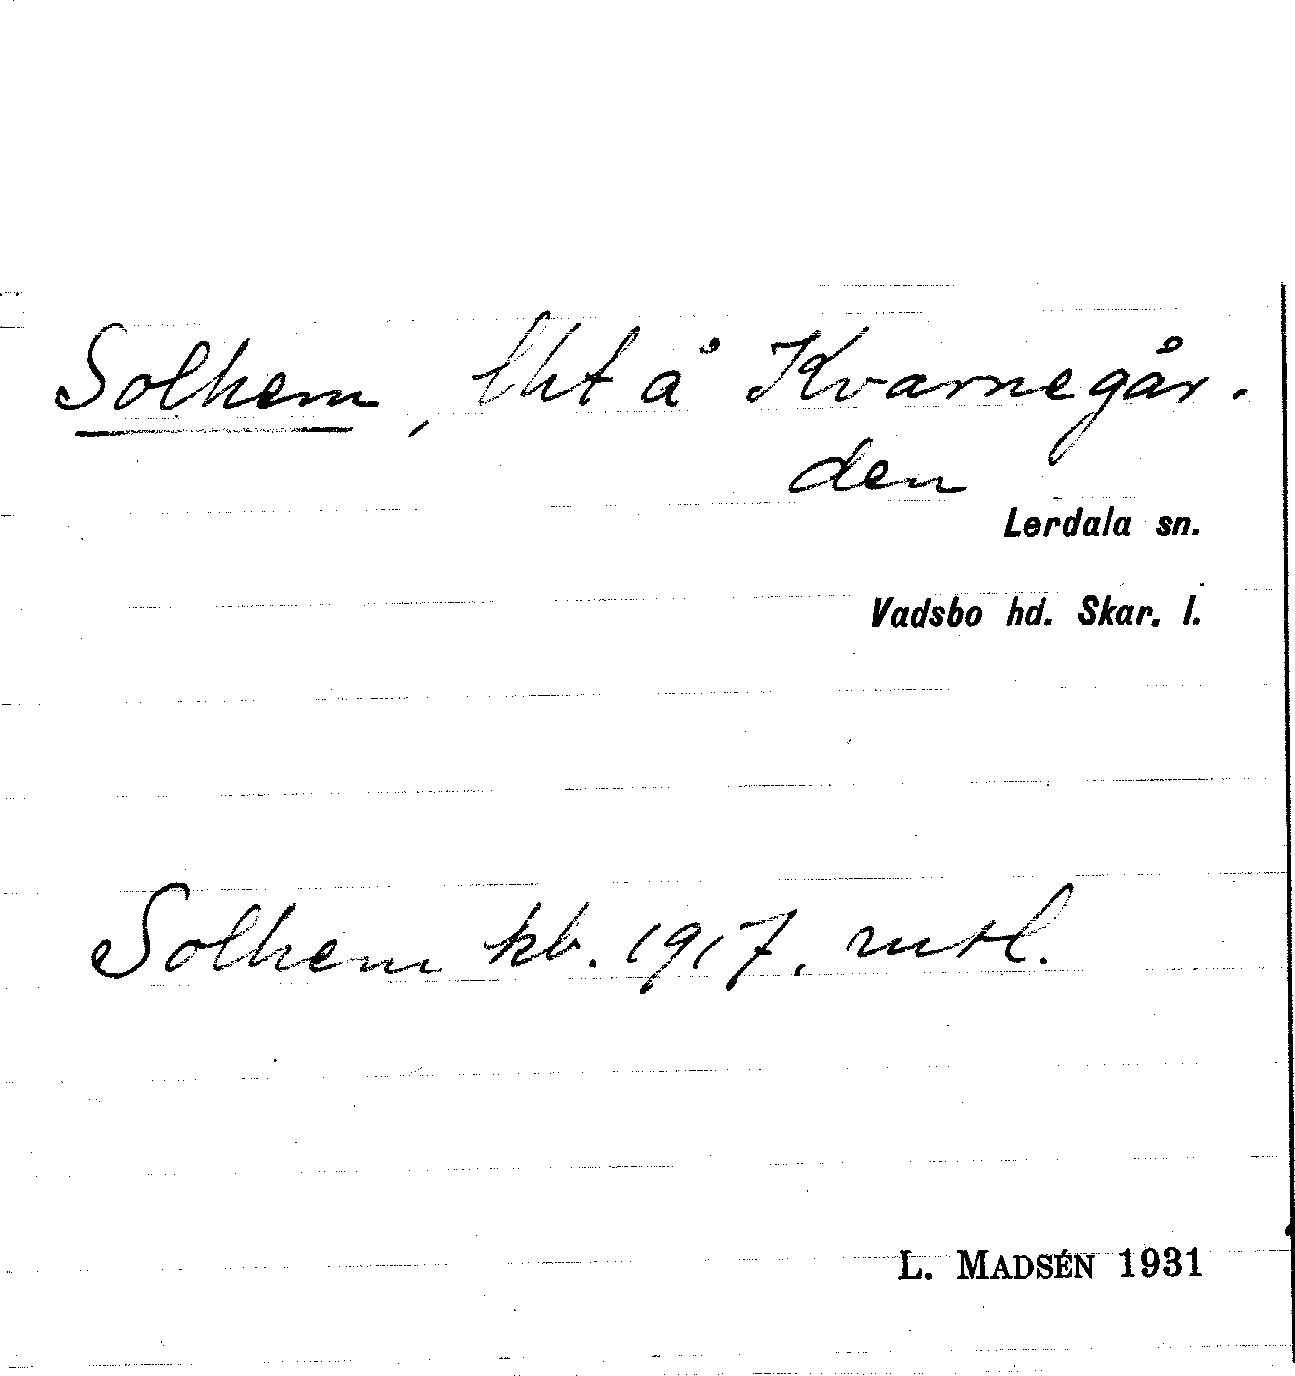 Solhem, lht å Kvarnegår-
den
Lerdala sn.
Vadsbo hd. Skar. l.
Solhem kb. 1917, mtl.
L. MADSÉN 1931